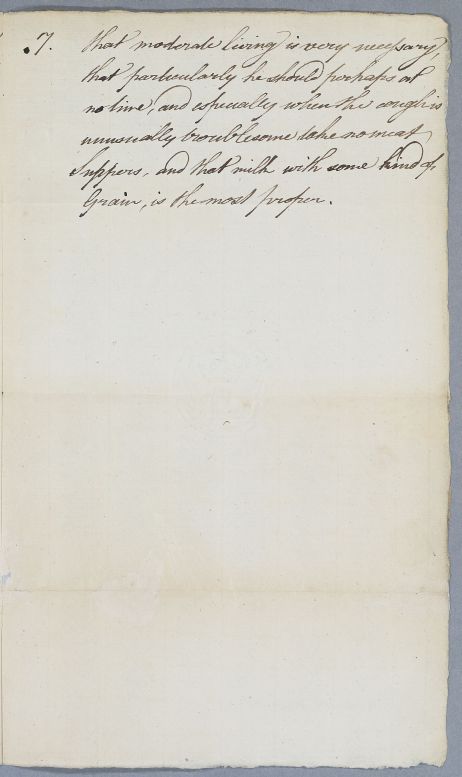 7. that moderate living is very necessary,
that particularly he should perhaps at
no time, and especially when the cough is
unusually troublesome take no meat
Suppers, and that milk with some kind of
Grain, is the most proper.